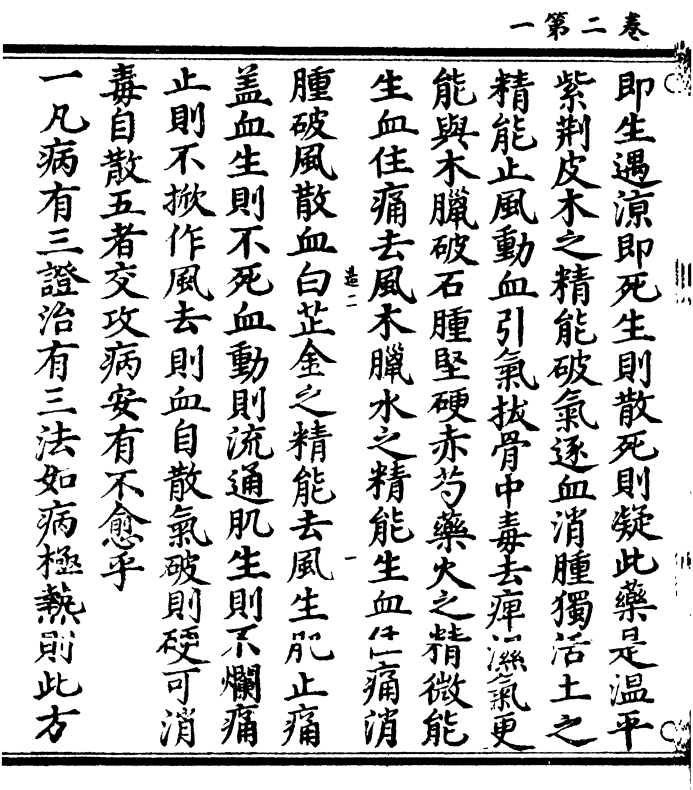 卷二第一
即生遇涼即死生則散死則凝此藥是温平
紫荆皮木之精能破氣逐血消腫獨活土之
精能止風動血引氣拔骨中毒去痺濕氣更
能與木臘破石腫堅硬赤芍藥火之精微能
生血住痛去風木臘水之精能生血住痛消
腫破風散血白芷金之精能去風生肌止痛
盖血生則不死血動則流通肌生則不爛痛
止則不掀作風去則血自散氣破則硬可消
毒自散五者交攻病安有不愈乎
一凡病有三證治有三法如病極熱則此方